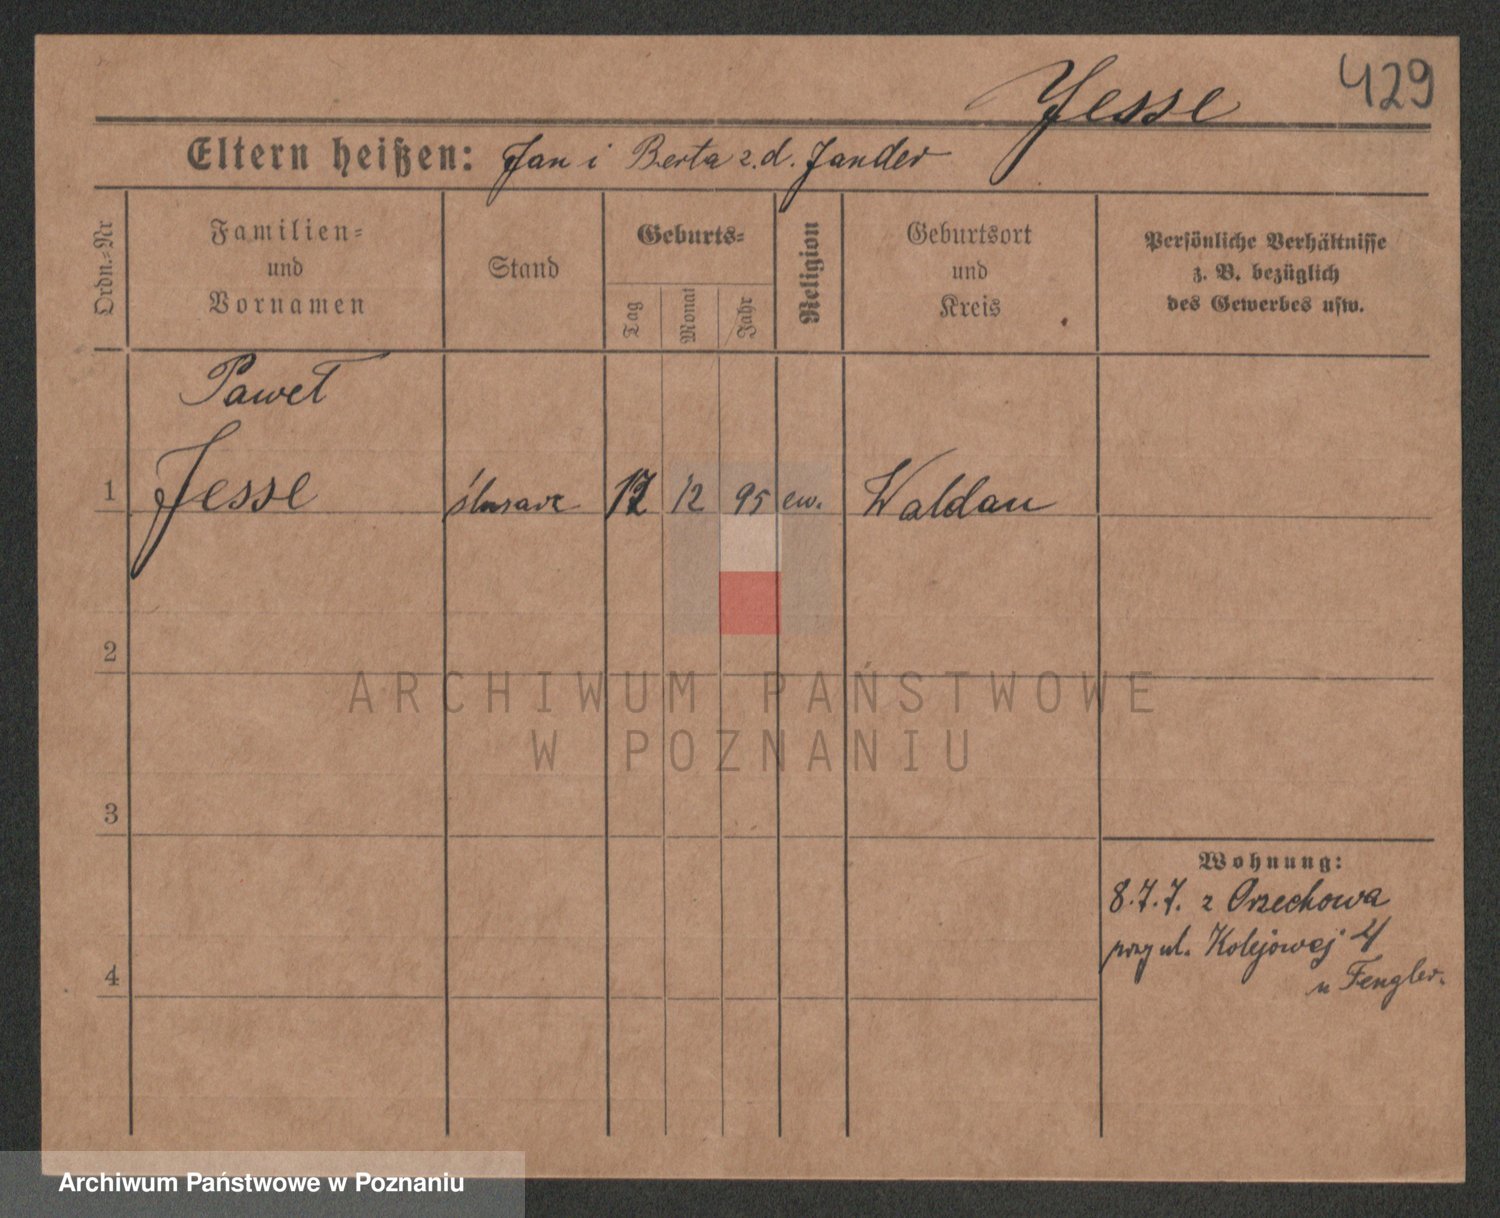 429
Jesse
Eltern heißen: Jan i Berta z.d. Jander
Ordn.-Nr
Familien-
und
Vornamen
Stand
Geburts-
Tag
Monat
Jahr
Religion
Geburtsort
und
Kreis
Persönliche Verhältnisse
z. B. bezüglich
des Gewerbes usw.
Paweł
1 Jesse ślusarz 12 95 ew. Waldau
2
3
4
Wohnung:
8.7.7. z Orzechowa
przy ul. Kolejowej 4
u Fengler.
ARCHIWUM PAŃSTWOWE
W POZNANIU
Archiwum Państwowe w Poznaniu